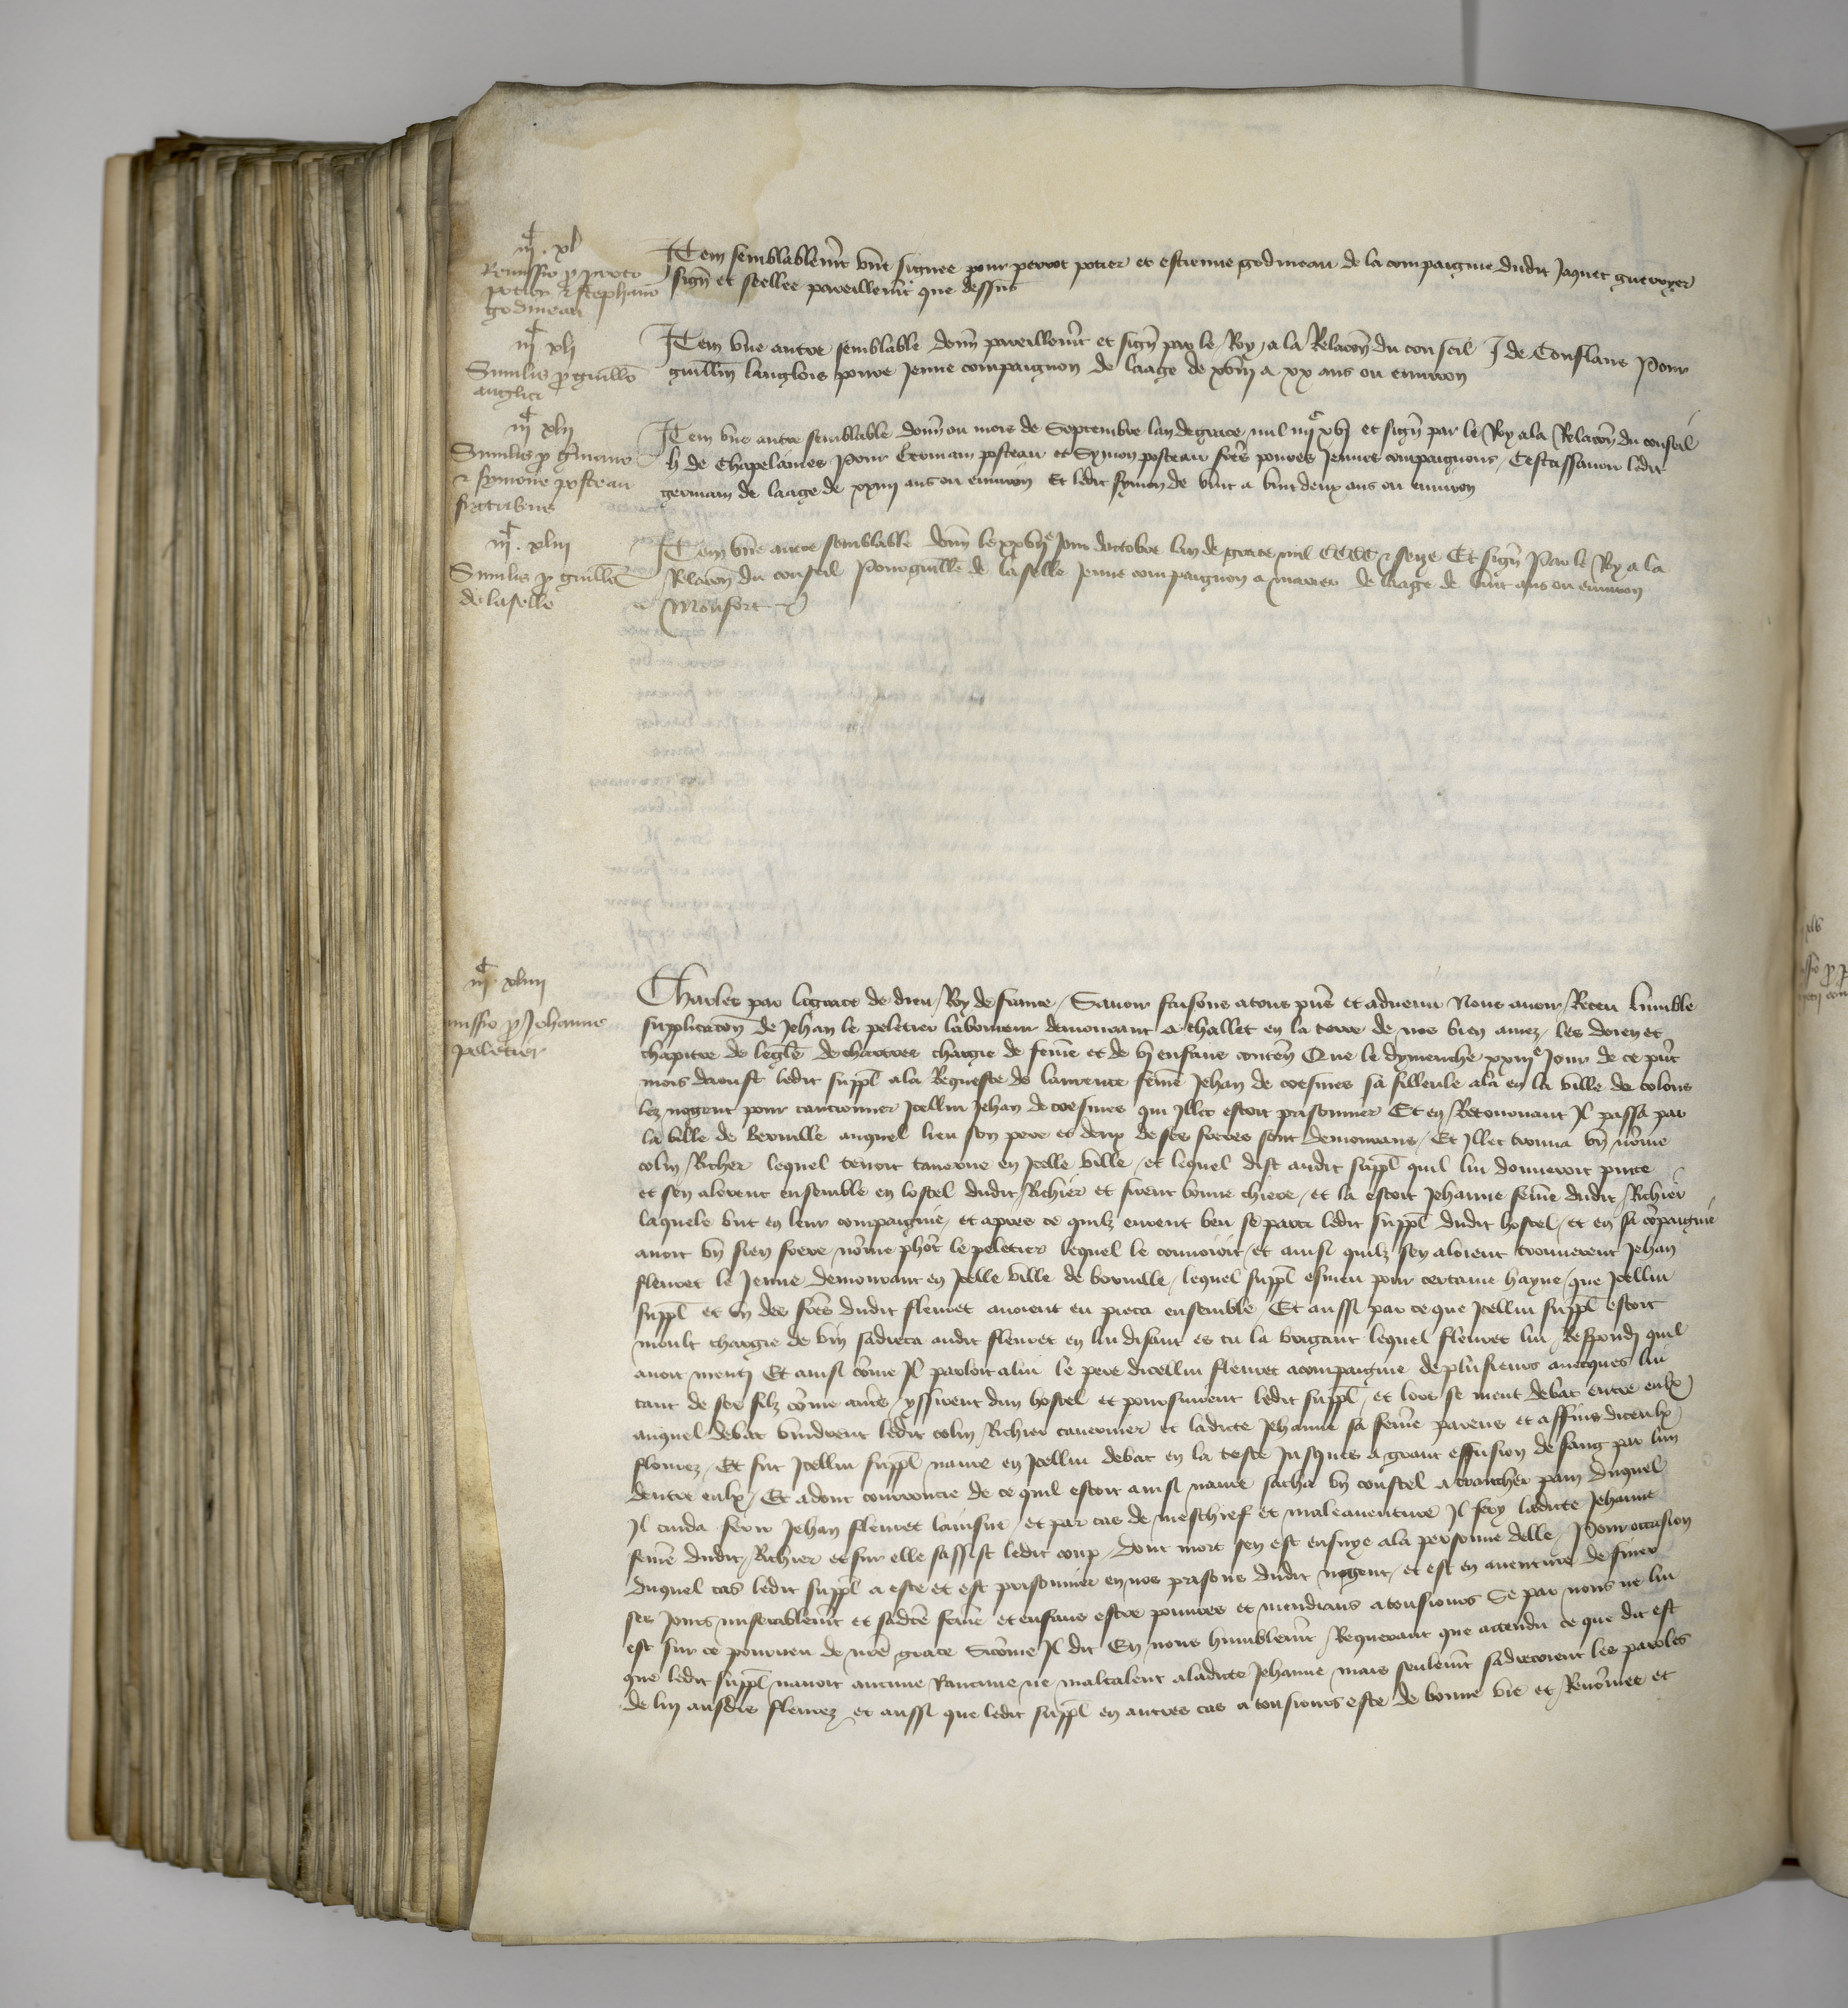 iijc. xl
Remissio p perreto
potier & stephano
godineau
Item semblablemt une signee pour perrot potier et estienne godineau de la compaignie dudit Jaquet gueroyer
sign et seellee pareillemt que dessus
iijc xlj
Similis p guillo
anglici
Item une autre semblable donn pareillemt et sign par le Roy a la Relacon du conseil J de Conflans Pour
guillm langlois povre jeune compaignon de laage de xviij a xx ans ou environ
iijc xlij
Similis p germano
& symone posteau
fratribus
Item une autre semblable donn ou mois de Septembre lan de grace mil iiijc xvj et sign par le Roy a la Relacon du conseil
h de Chapelaines Pour Germain posteau et Symon posteau freres povres Jeunes compaignons / Cestassavoir ledit
germain de laage de xxiiij ans ou environ Et ledit symon de vint a vint deux ans ou environ
iijc. xliij
Similis p guillo
de laselle
Item une autre semblable donn le xxviije Jour doctobre lan de grace mil CCCC & seize Et sign Par le Roy a la
Relacon du conseil Pour guille de laselle Jeune compaignon a marier de laage de vint ans ou environ
Monfort
iijc xliiij
missio p Johanne
peletier
Charles par lagrace de dieu / Roy de france / Savoir faisons atous pns et advenir Nous avoir / Receu lumble
supplicacon de Jehan le peletier laboureur demourant a challet en la terre de nos bien amez / les doien et
chapitre de legle de chartres chargie de feme et de vj enfans conten Que le dymenche xxiije Jour de ce pnt
mois daoust ledit suppl ala Requeste de laurence feme Jehan de coesmes sa filleule ala en la ville de colons
lez nogent pour cautionner Icellui Jehan de coesmes qui Illec estoit prisonnier Et en / Retournant Il passa par
la ville de berville auquel lieu son pere et deux de ses freres sont demourans / Et Illec trouva un nome
colin / Richer lequel tenoit taverne en Icelle ville / et lequel dist audit suppl quil lui donneroit pinte
et sen alerent ensemble en lostel dudit / Richier et firent bonne chiere / et la estoit Jehanne feme dudit / Richier
laquele but en leur compaignie / et apres ce quilz eurent beu se parti ledit suppl dudit hostel / et en sa copaignie
avoit un sien frere nome phot le peletier lequel le convoioit / et ainsi quilz sen aloient trouverent Jehan
fleuret le Jeune demourant en Icelle ville de berville / lequel suppl esmeu pour certaine hayne / que Icellui
suppl et un des fres dudit fleuret avoient eu pieca ensemble / Et aussi par ce que Icellui suppl estoit
moult chargie de vin sadreca audit fleuret en lui disant es tu la brigant lequel fleuret lui / Respondi quil
avoit menti Et ainsi come Il parloit a lui le pere dicellui fleuret acompaignie de plusieurs avecques lui
tant de ses filz come autres / yssirent dun hostel et poursuirent ledit suppl / et lors se meut debat entre eulx
auquel debat vindrent ledit colin / Richier tavernier et ladicte Jehanne sa feme parens et affins diceulx
fleurez / Et fut Icellui suppl navre en Icellui debat en la teste Jusques a grant effusion de sang par lun
dentre eulx / Et adont courroucie de ce quil estoit ainsi navre sacha un coustel a trancher pain duquel
Il cuida ferir Jehan fleuret lainsne / et par cas de meschief et maleaventure Il fery ladicte Jehanne
feme dudit / Richier et sur elle sassist ledit coup / dont mort sen est ensuye ala personne delle / Pour occasion
duquel cas ledit suppl a este et est prisonnier en nos prisons dudit nogent / et est en aventure de finer
ses Jours miserablemt et sadicte feme et enfans estre pouvres et mendians a tousiours Se par nous ne lui
est sur ce pourveu de nre grace Sicome Il dit En nous humblemt / Requerant que attendu ce que dit est
que ledit suppl navoit aucune Rancune ne maltalent a ladicte Jehanne mais seulemt sadrecoient les paroles
de lui ausdis fleurez / et aussi que ledit suppl en autres cas a tousiours este de bonne vie et / Renomee et